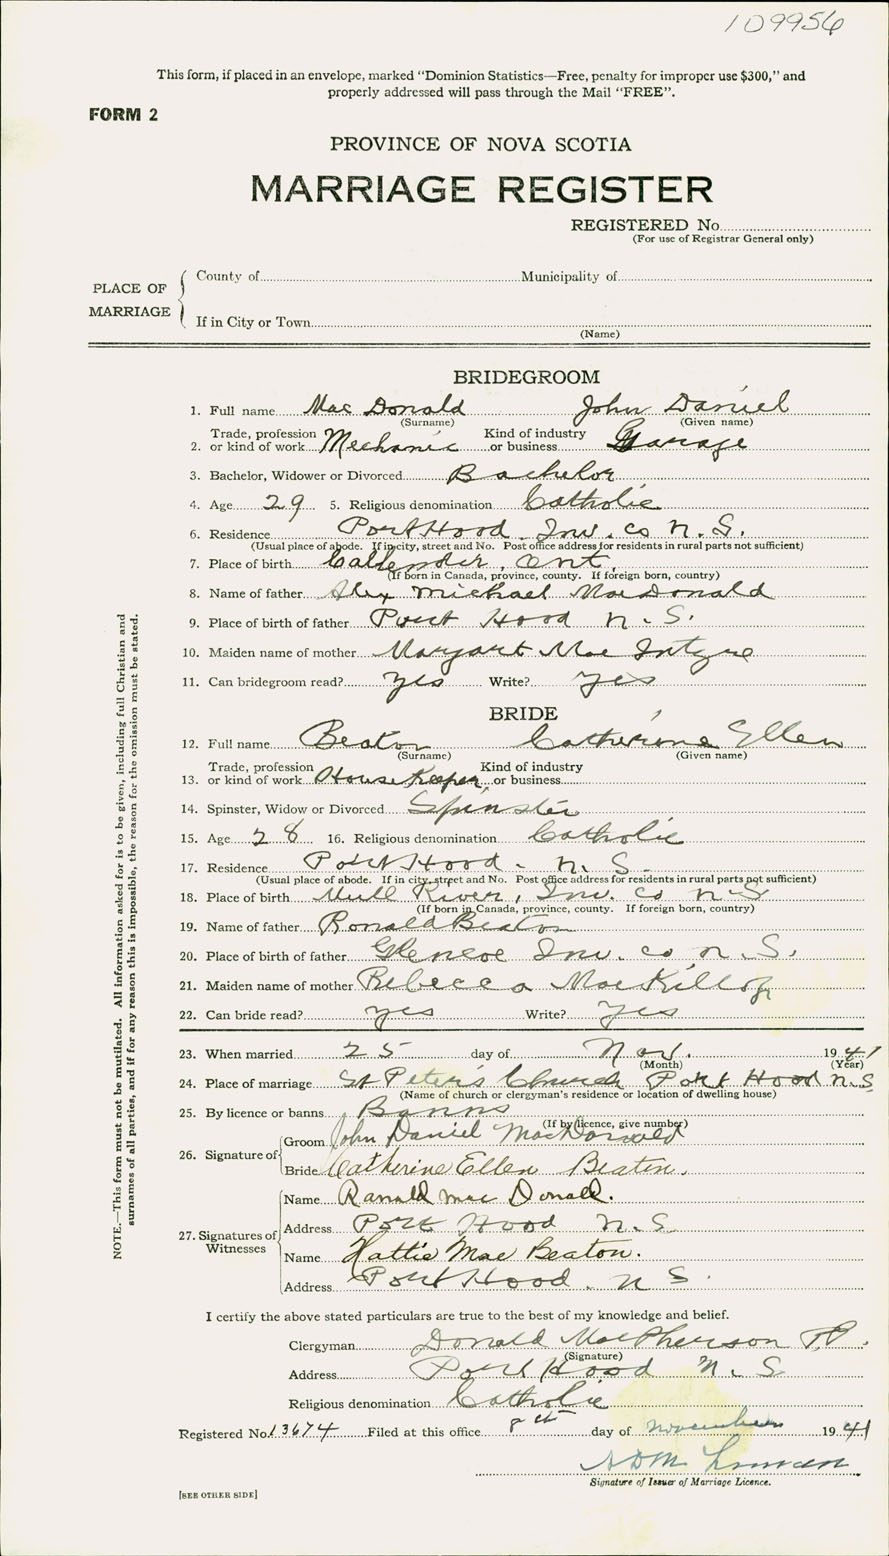 109956
This form, if placed in an envelope, marked "Dominion Statistics—Free, penalty for improper use $300," and
properly addressed will pass through the Mail "FREE".
FORM 2
PROVINCE OF NOVA SCOTIA
MARRIAGE REGISTER
REGISTERED No
(For use of Registrar General only)
PLACE OF MARRIAGE
County of Municipality of
If in City or Town
(Name)
BRIDEGROOM
1. Full name Mac Donald John Daniel
(Surname) (Given name)
2. Trade, profession or kind of work Mechanic Kind of industry or business Garage
3. Bachelor, Widower or Divorced Bachelor
4. Age 29 5. Religious denomination Catholic
6. Residence Port Hood Inv. Co N.S.
(Usual place of abode. If in city, street and No. Post office address for residents in rural parts not sufficient)
7. Place of birth Callender, Ont.
(If born in Canada, province, county. If foreign born, country)
8. Name of father Alex Michael MacDonald
9. Place of birth of father Port Hood N.S.
10. Maiden name of mother Margart Mac Intyre
11. Can bridegroom read? yes Write? yes
BRIDE
12. Full name Beaton Catherine Ellen
(Surname) (Given name)
13. Trade, profession or kind of work House Keeper Kind of industry or business
14. Spinster, Widow or Divorced Spinster
15. Age 28 16. Religious denomination Catholic
17. Residence Port Hood - N.S.
(Usual place of abode. If in city, street and No. Post office address for residents in rural parts not sufficient)
18. Place of birth Mull River, Inv. Co N S
(If born in Canada, province, county. If foreign born, country)
19. Name of father Ronald Beaton
20. Place of birth of father Glencoe Inv. Co N.S.
21. Maiden name of mother Rebecca MacKillop
22. Can bride read? yes Write? yes
23. When married 25 day of Nov. 1941
(Month) (Year)
24. Place of marriage St Peter's Church Port Hood N.S
(Name of church or clergyman's residence or location of dwelling house)
25. By licence or banns Banns
(If by licence, give number)
26. Signature of
Groom John Daniel MacDonald
Bride Catherine Ellen Beaton.
27. Signatures of Witnesses
Name Ranald Mac Donald.
Address Port Hood N.S
Name Hattie Mae Beaton.
Address Port Hood. N S.
I certify the above stated particulars are true to the best of my knowledge and belief.
Clergyman Donald MacPherson P.P.
(Signature)
Address Port Hood N.S
Religious denomination Catholic
Registered No. 13674 Filed at this office 8th day of November 1941
Signature of Issuer of Marriage Licence.
[SEE OTHER SIDE]
NOTE.—This form must not be mutilated. All information asked for is to be given, including full Christian and
surnames of all parties, and if for any reason this is impossible, the reason for the omission must be stated.